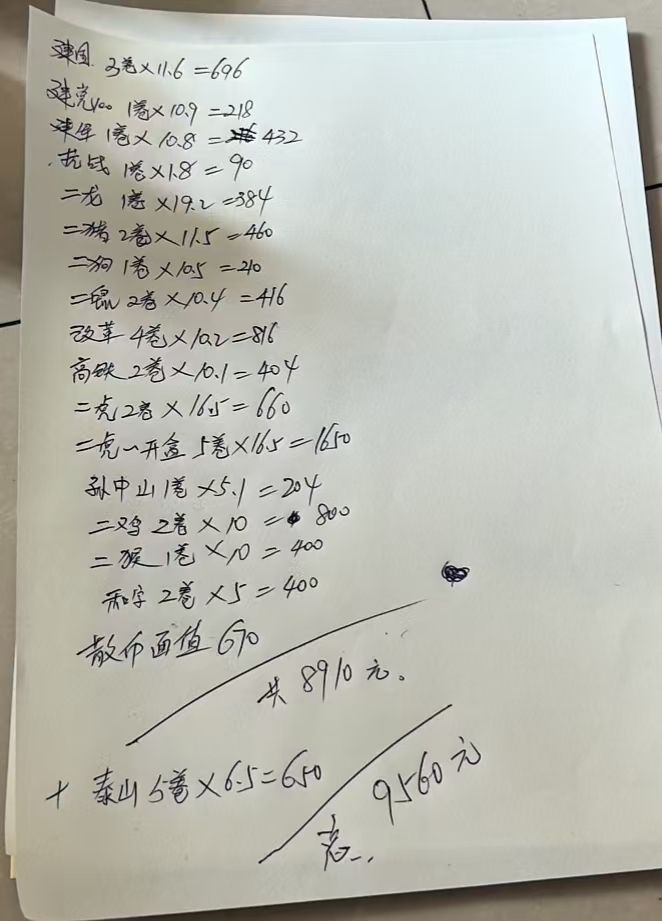 建国 3卷×11.6=696
建党100 1卷×10.9=218
建军 1卷×10.8= 432
抗战 1卷×1.8=90
二龙 1卷×19.2=384
二猪 2卷×11.5=460
二狗 1卷×10.5=210
二鼠 2卷×10.4=416
改革 4卷×10.2=816
高铁 2卷×10.1=404
二虎 2卷×16.5=660
二虎一开盒 5卷×16.5=1650
孙中山 1卷×5.1=204
二鸡 2卷×10= 800
二猴 1卷×10=400
和字 2卷×5=400
散币面值 670
共 8910元.
+ 泰山 5卷×6.5=650
9560元